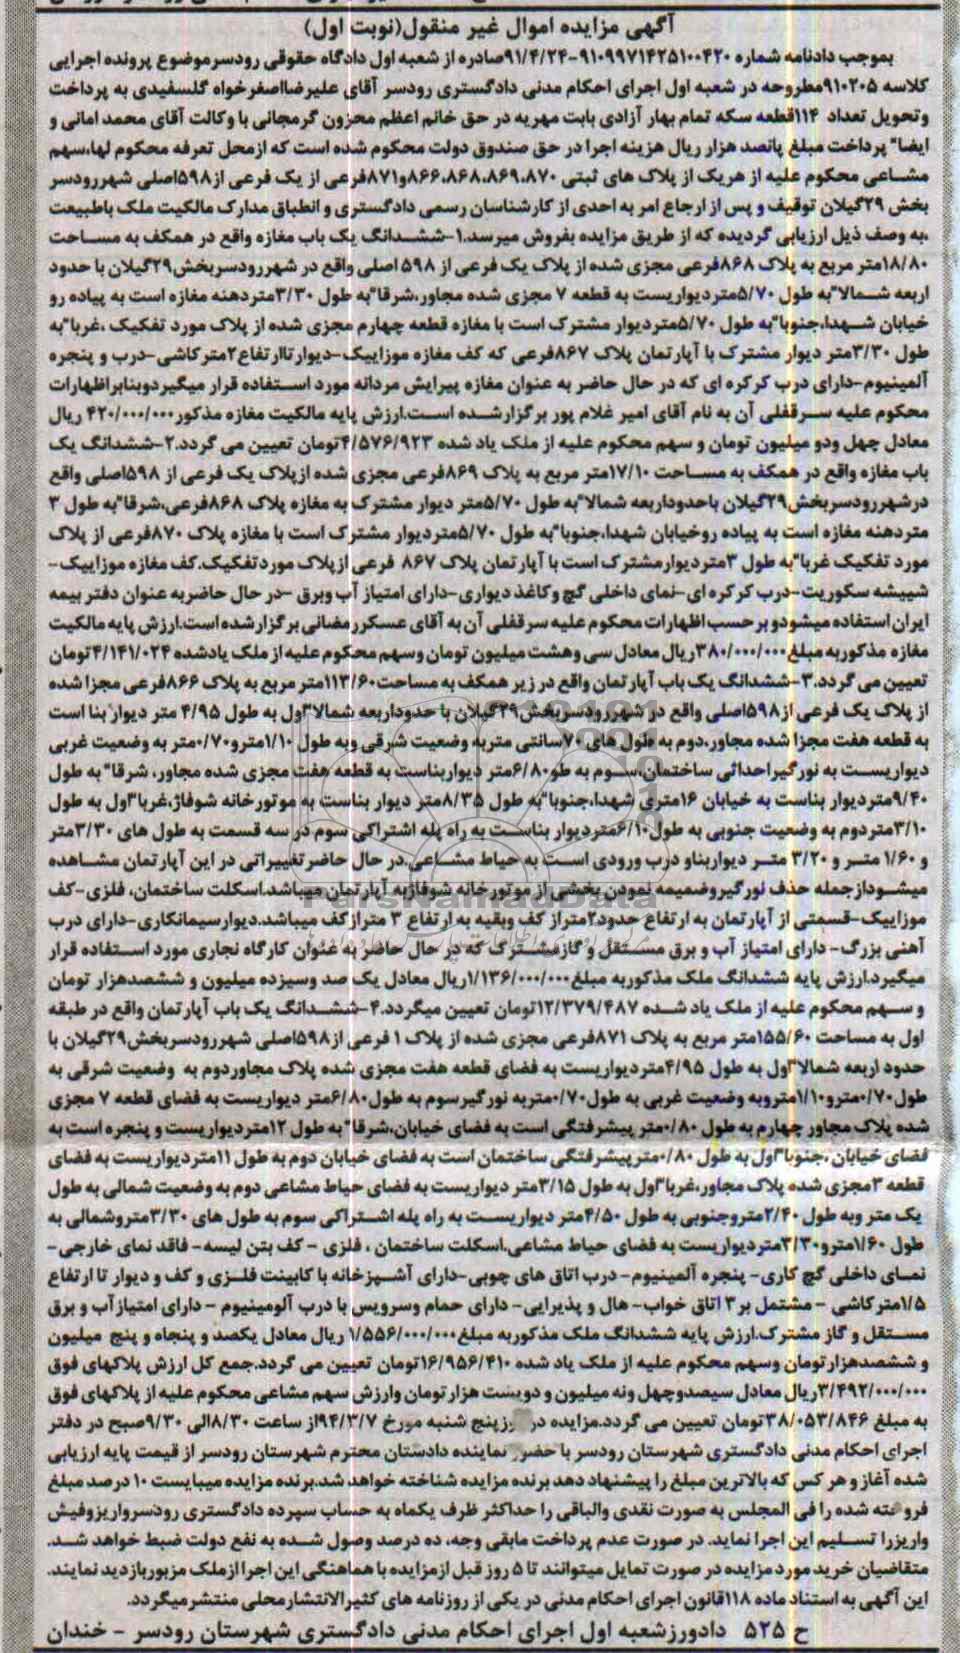 آگهی مزایده اموال غیر منقول(نوبت اول)
بموجب دادنامه شماره ۹۱۰۹۹۷۱۴۲۵۱۰۰۴۲۰-۹۱/۴/۲۴صادره از شعبه اول دادگاه حقوقی رودسرموضوع پرونده اجرایی
کلاسه ۹۱۰۲۰۵مطروحه در شعبه اول اجرای احکام مدنی دادگستری رودسر آقای علیرضااصغرخواه گلسفیدی به پرداخت
وتحویل تعداد ۱۱۴قطعه سکه تمام بهار آزادی بابت مهریه در حق خانم اعظم محزون گرمجانی با وکالت آقای محمد امانی و
ایضا" پرداخت مبلغ پانصد هزار ریال هزینه اجرا در حق صندوق دولت محکوم شده است که ازمحل تعرفه محکوم لها،سهم
مشاعی محکوم علیه از هریک از پلاک های ثبتی ۸۶۶،۸۶۸،۸۶۹،۸۷۰و۸۷۱فرعی از یک فرعی از۵۹۸اصلی شهررودسر
بخش ۲۹گیلان توقیف و پس از ارجاع امر به احدی از کارشناسان رسمی دادگستری و انطباق مدارک مالکیت ملک باطبیعت
،به وصف ذیل ارزیابی گردیده که از طریق مزایده بفروش میرسد.۱-ششدانگ یک باب مغازه واقع در همکف به مساحت
۱۸/۸۰متر مربع به پلاک ۸۶۸فرعی مجزی شده از پلاک یک فرعی از ۵۹۸ اصلی واقع در شهررودسربخش۲۹گیلان با حدود
اربعه شمالا"به طول ۵/۷۰متردیواریست به قطعه ۷ مجزی شده مجاور،شرقا"به طول ۳/۳۰متردهنه مغازه است به پیاده رو
خیابان شهدا،جنوبا"به طول ۵/۷۰متردیوار مشترک است با مغازه قطعه چهارم مجزی شده از پلاک مورد تفکیک ،غربا"به
طول ۳/۳۰متر دیوار مشترک با آپارتمان پلاک ۸۶۷فرعی که کف مغازه موزاییک-دیوارتاارتفاع۲مترکاشی-درب و پنجره
آلمینیوم-دارای درب کرکره ای که در حال حاضر به عنوان مغازه پیرایش مردانه مورد استفاده قرار میگیردوبنابراظهارات
محکوم علیه سرقفلی آن به نام آقای امیر غلام پور برگزارشده است.ارزش پایه مالکیت مغازه مذکور۴۲۰/۰۰۰/۰۰۰ ریال
معادل چهل ودو میلیون تومان و سهم محکوم علیه از ملک یاد شده ۴/۵۷۶/۹۲۳تومان تعیین می گردد.۲-ششدانگ یک
باب مغازه واقع در همکف به مساحت ۱۷/۱۰متر مربع به پلاک ۸۶۹فرعی مجزی شده ازپلاک یک فرعی از ۵۹۸اصلی واقع
درشهررودسربخش۲۹گیلان باحدوداربعه شمالا"به طول ۵/۷۰متر دیوار مشترک به مغازه پلاک ۸۶۸فرعی،شرقا"به طول ۳
متردهنه مغازه است به پیاده روخیابان شهدا،جنوبا"به طول ۵/۷۰متردیوار مشترک است با مغازه پلاک ۸۷۰فرعی از پلاک
مورد تفکیک غربا"به طول ۳متردیوارمشترک است با آپارتمان پلاک ۸۶۷ فرعی ازپلاک موردتفکیک.کف مغازه موزاییک-
شییشه سکوریت-درب کرکره ای-نمای داخلی گچ وکاغذ دیواری-دارای امتیاز آب وبرق -در حال حاضربه عنوان دفتر بیمه
ایران استفاده میشودو برحسب اظهارات محکوم علیه سرقفلی آن به آقای عسکررمضانی برگزارشده است.ارزش پایه مالکیت
مغازه مذکوربه مبلغ۳۸۰/۰۰۰/۰۰۰ریال معادل سی وهشت میلیون تومان وسهم محکوم علیه از ملک یادشده ۴/۱۴۱/۰۲۴تومان
تعیین می گردد.۳-ششدانگ یک باب آپارتمان واقع در زیر همکف به مساحت۱۱۳/۶۰متر مربع به پلاک ۸۶۶فرعی مجزا شده
از پلاک یک فرعی از۵۹۸اصلی واقع در شهررودسربخش۲۹گیلان با حدوداربعه شمالا"اول به طول ۴/۹۵ متر دیوار بنا است
به قطعه هفت مجزا شده مجاور،دوم به طول های ۷۰سانتی متربه وضعیت شرقی وبه طول ۱/۱۰مترو۰/۷۰متر به وضعیت غربی
دیواریست به نورگیراحداثی ساختمان،سوم به طو۶/۸۰متر دیواربناست به قطعه هفت مجزی شده مجاور، شرقا" به طول
۹/۴۰متردیوار بناست به خیابان ۱۶متری شهدا،جنوبا"به طول ۸/۳۵متر دیوار بناست به موتورخانه شوفاژ،غربا"اول به طول
۳/۱۰متردوم به وضعیت جنوبی به طول۶/۱۰متردیوار بناست به راه پله اشتراکی سوم در سه قسمت به طول های ۳/۳۰متر
و ۱/۶۰ متر و ۳/۲۰ متر دیواربناو درب ورودی است به حیاط مشاعی.در حال حاضرتغییراتی در این آپارتمان مشاهده
میشودازجمله حذف نورگیروضمیمه نمودن بخشی از موتورخانه شوفاژبه آپارتمان میباشد.اسکلت ساختمان، فلزی-کف
موزاییک-قسمتی از آپارتمان به ارتفاع حدود۲متراز کف وبقیه به ارتفاع ۳ متراز کف میباشد.دیوارسیمانکاری-دارای درب
آهنی بزرگ- دارای امتیاز آب و برق مستقل و گازمشترک که در حال حاضر به عنوان کارگاه نجاری مورد استفاده قرار
میگیرد.ارزش پایه ششدانگ ملک مذکوربه مبلغ۱/۱۳۶/۰۰۰/۰۰۰ریال معادل یک صد وسیزده میلیون و ششصدهزار تومان
و سهم محکوم علیه از ملک یاد شده ۱۲/۳۷۹/۴۸۷تومان تعیین میگردد.۴-ششدانگ یک باب آپارتمان واقع در طبقه
اول به مساحت ۱۵۵/۶۰متر مربع به پلاک ۸۷۱فرعی مجزی شده از پلاک ۱ فرعی از۵۹۸اصلی شهررودسربخش۲۹گیلان با
حدود اربعه شمالا"اول به طول ۴/۹۵متردیواریست به فضای قطعه هفت مجزی شده پلاک مجاوردوم به وضعیت شرقی به
طول۰/۷۰مترو۱/۱۰متروبه وضعیت غربی به طول۰/۷۰متربه نورگیرسوم به طول۶/۸۰متر دیواریست به فضای قطعه ۷ مجزی
شده پلاک مجاور چهارم به طول ۰/۸۰متر پیشرفتگی است به فضای خیابان،شرقا" به طول ۱۲متردیواریست و پنجره است به
فضای خیابان ،جنوبا"اول به طول ۰/۸۰مترپیشرفتگی ساختمان است به فضای خیابان دوم به طول ۱۱متردیواریست به فضای
قطعه ۳مجزی شده پلاک مجاور،غربا"اول به طول ۳/۱۵متر دیواریست به فضای حیاط مشاعی دوم به وضعیت شمالی به طول
یک متر وبه طول ۲/۴۰متروجنوبی به طول ۴/۵۰متر دیواریست به راه پله اشتراکی سوم به طول های ۳/۳۰متروشمالی به
طول ۱/۶۰مترو۳/۳۰متردیواریست به فضای حیاط مشاعی.اسکلت ساختمان ، فلزی - کف بتن لیسه- فاقد نمای خارجی-
نمای داخلی گچ کاری- پنجره آلمینیوم- درب اتاق های چوبی-دارای آشپزخانه با کابینت فلزی و کف و دیوار تا ارتفاع
۱/۵مترکاشی - مشتمل بر۳ اتاق خواب- هال و پذیرایی- دارای حمام وسرویس با درب آلومینیوم - دارای امتیازآب و برق
مستقل و گاز مشترک.ارزش پایه ششدانگ ملک مذکوربه مبلغ۱/۵۵۶/۰۰۰/۰۰۰ ریال معادل یکصد و پنجاه و پنج میلیون
و ششصدهزارتومان وسهم محکوم علیه از ملک یاد شده ۱۶/۹۵۶/۴۱۰تومان تعیین می گردد.جمع کل ارزش پلاکهای فوق
۳/۴۹۲/۰۰۰/۰۰۰ریال معادل سیصدوچهل ونه میلیون و دویست هزارتومان وارزش سهم مشاعی محکوم علیه از پلاکهای فوق
به مبلغ ۳۸/۰۵۳/۸۴۶تومان تعیین می گردد.مزایده در روزپنج شنبه مورخ ۹۴/۳/۷از ساعت ۸/۳۰الی ۹/۳۰صبح در دفتر
اجرای احکام مدنی دادگستری شهرستان رودسر با حضور نماینده دادستان محترم شهرستان رودسر از قیمت پایه ارزیابی
شده آغاز و هر کس که بالاترین مبلغ را پیشنهاد دهد برنده مزایده شناخته خواهد شد.برنده مزایده میبایست ۱۰ درصد مبلغ
فروخته شده را فی المجلس به صورت نقدی والباقی را حداکثر ظرف یکماه به حساب سپرده دادگستری رودسرواریزوفیش
واریزرا تسلیم این اجرا نماید. در صورت عدم پرداخت مابقی وجه، ده درصد وصول شده به نفع دولت ضبط خواهد شد.
متقاضیان خرید مورد مزایده در صورت تمایل میتوانند تا ۵ روز قبل ازمزایده با هماهنگی این اجرا ازملک مزبوربازدید نمایند.
این آگهی به استناد ماده ۱۱۸قانون اجرای احکام مدنی در یکی از روزنامه های کثیرالانتشارمحلی منتشرمیگردد.
ح ۵۲۵ دادورزشعبه اول اجرای احکام مدنی دادگستری شهرستان رودسر - خندان
ParsNamadData